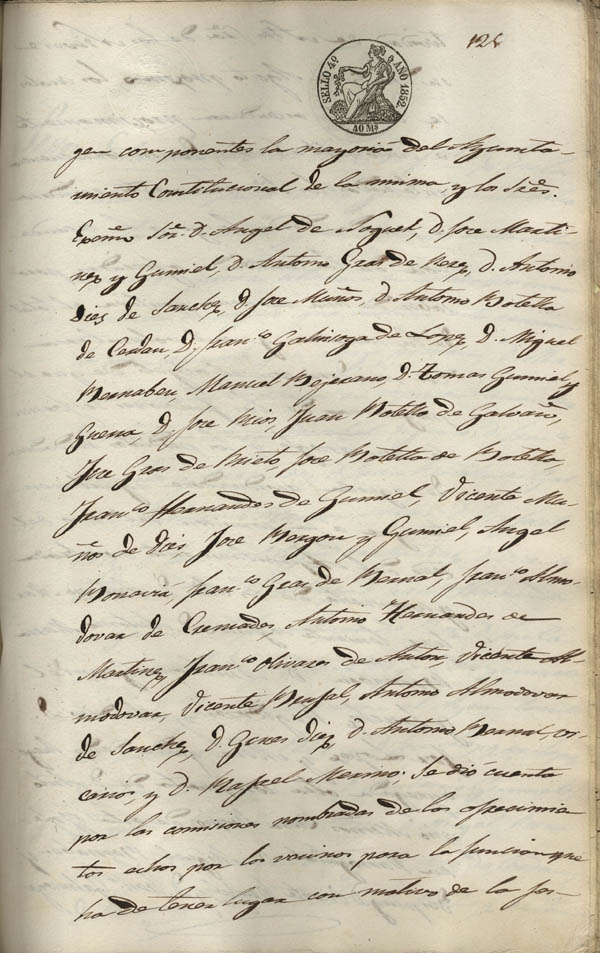 125
SELLO 4º AÑO 1852.
40 Ms
gen componentes la mayoria del Ayunta-
miento Constitucional de la misma, y los Sres.
Exmo Sor. D. Angel de Noguet, D. Jose Marti-
nez y Gumiel, D. Antonio Gras de Perez, D. Antonio
Dies de Sanchez, D. Jose Muños, D. Antonio Botella
de Cerdan, D. Franco. Galinsoga de Lopez, D. Miguel
Bernabeu, Manuel Bejerano, D. Tomas Gumiel y
Guerra, D. Jose Rios, Juan Botella de Galvañ,
Jose Gras de Prieto, Jose Botella de Botella,
Franco. Hernandes de Gumiel, Vicente Mu-
ños de Dies, Jose Bergon y Gumiel, Angel
Franco. Gras de Bernal, Franco. Almo-
dovar de Cremades, Antonio Hernandes de
Martinez, Franco. Olivares de Anton, Vicente Al-
modovar, Vicente Antonio Almodovar
de Sanchez, D. Gines Diez, D. Antonio Bernal, vi-
cario, y D. Rafael Merino. Se dió cuenta
por las comisiones nombradas de los ofrecimie
tos echos por los vecinos para la funcion que
ha de tener lugar con motivo de la fes-